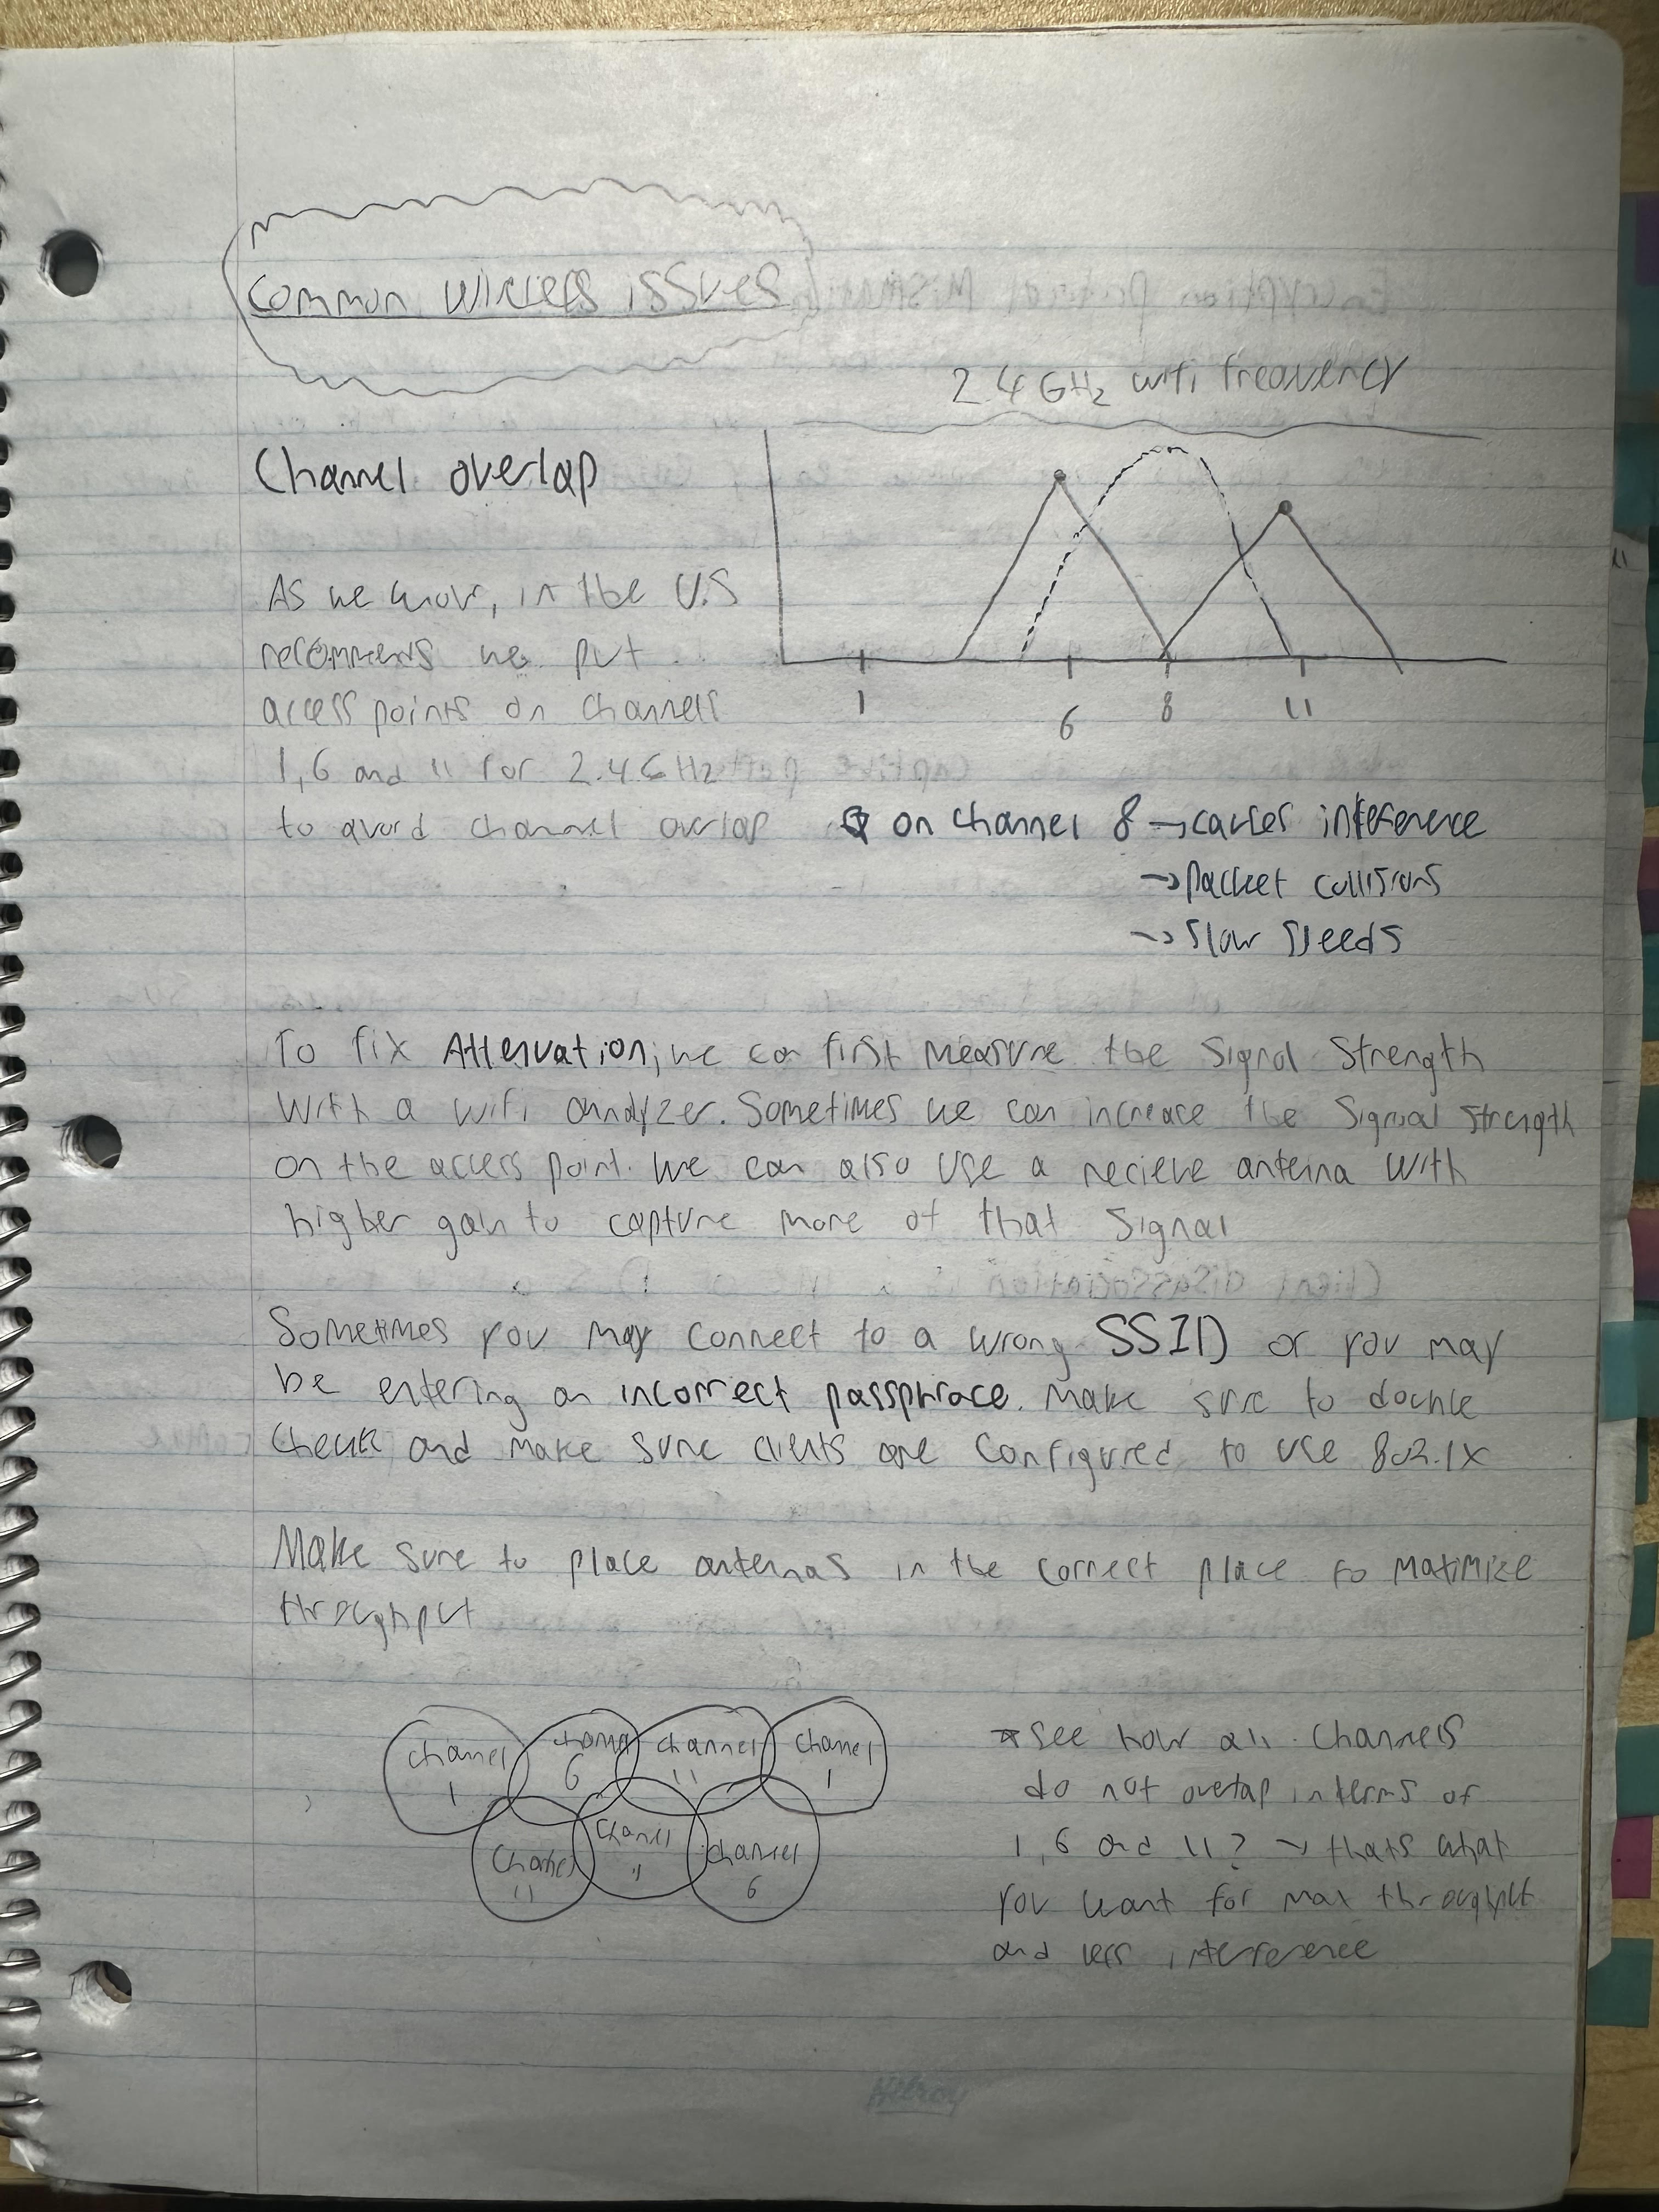 Common Wireless issues
2.4 GHz wifi frequency
Channel overlap
As we know, in the U.S
recommends we put
access points on channels
1, 6 and 11 for 2.4 GHz
to avoid channel overlap
1 6 8 11
on channel 8 → causes interference
→ packet collisions
→ slow speeds
To fix Attenuation, we can first measure the signal strength
with a wifi analyzer. Sometimes we can increase the signal strength
on the access point. We can also use a recieve antenna with
higher gain to capture more of that signal
Sometimes you may connect to a wrong SSID or you may
be entering an incorrect passphrace. Make sure to double
check and make sure clients are configured to use 802.1x
Make sure to place antennas in the correct place to maximize
throughput
Channel 1
Channel 6
Channel 11
Channel 1
Channel 11
Channel 11
Channel 6
*See how all channels
do not overlap in terms of
1, 6 and 11? → thats what
you want for max throughput
and less interference
Hilroy